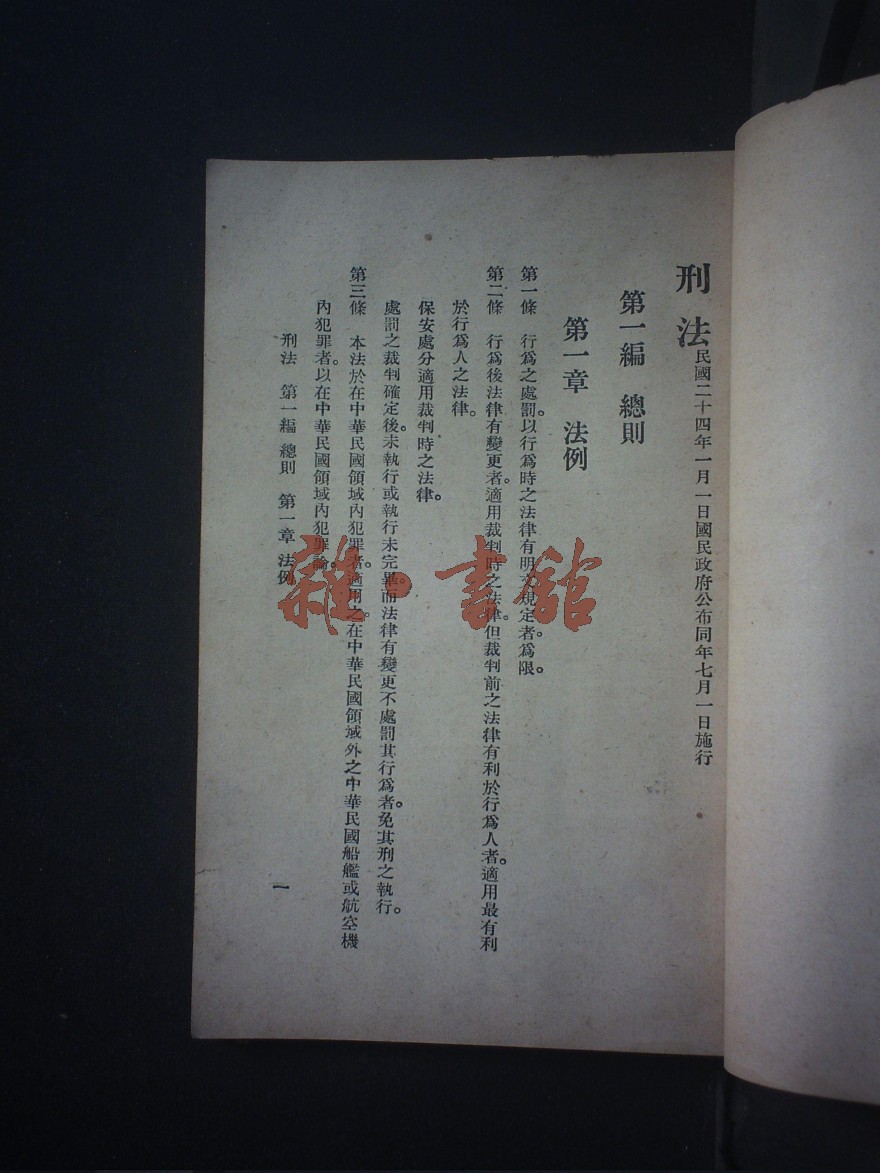 刑法民國二十四年一月一日國民政府公布同年七月一日施行
第一編 總則
第一章 法例
第一條 行爲之處罰。以行爲時之法律有明文規定者。爲限。
第二條 行爲後法律有變更者。適用裁判時之法律。但裁判前之法律有利於行爲人者。適用最有利
於行爲人之法律。
保安處分適用裁判時之法律。
處罰之裁判確定後。未執行或執行未完畢。而法律有變更不處罰其行爲者。免其刑之執行。
第三條 本法於在中華民國領域內犯罪者。適用之。在中華民國領域外之中華民國船艦或航空機
內犯罪者。以在中華民國領域內犯罪論。
刑法 第一編 總則 第一章 法例
一
雜·書館